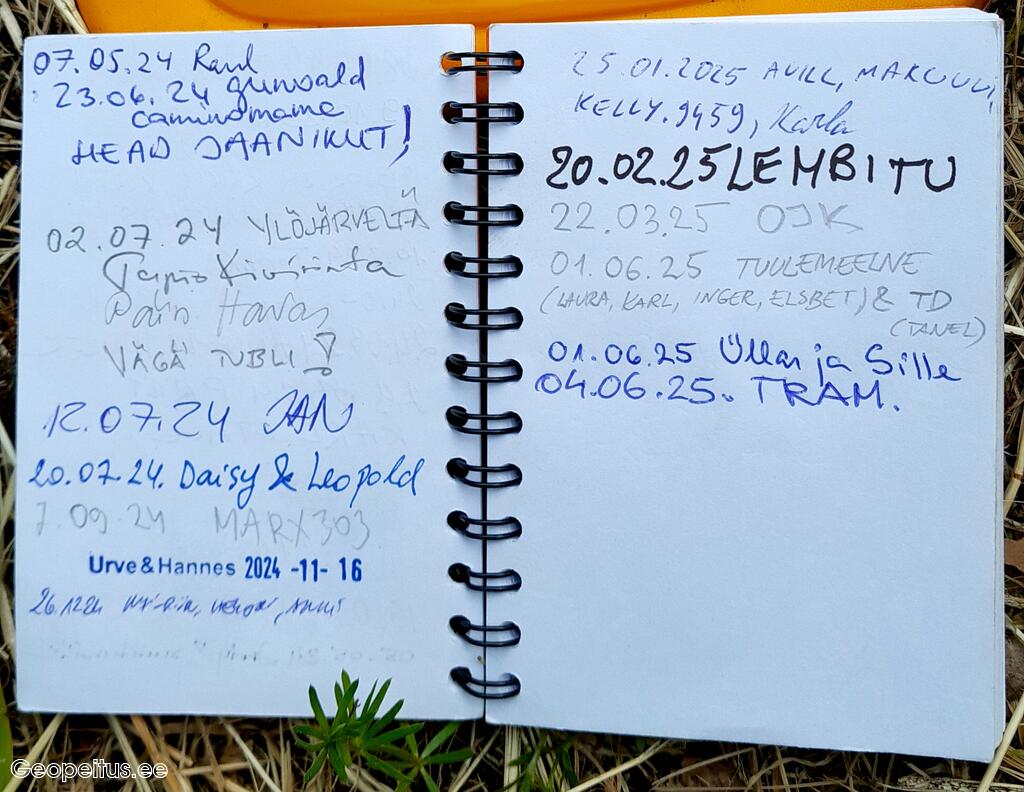 07.05.24 Raul
23.06.24 grünvald
caminomame
HEAD JAANIKUT!
02.07.24 YLÖJÄRVELTÄ
Tapio Kivirinta
Päiv Havas
VÄGA TUBLI!
12.07.24 JAN
20.07.24. Daisy & Leopold
7.09.24 MARX303
Urve & Hannes 2024 -11- 16
26.12.24
25.01.2025 AVILL, MARCUULI,
KELLY.9459, Karla
20.02.25 LEMBITU
22.03.25 OJK
01.06.25 TUULEMEELNE
(LAURA, KARL, INGER, ELSBET) & TD
(TANEL)
01.06.25 Üllar ja Sille
04.06.25. TRAM.
Geopeitus.ee